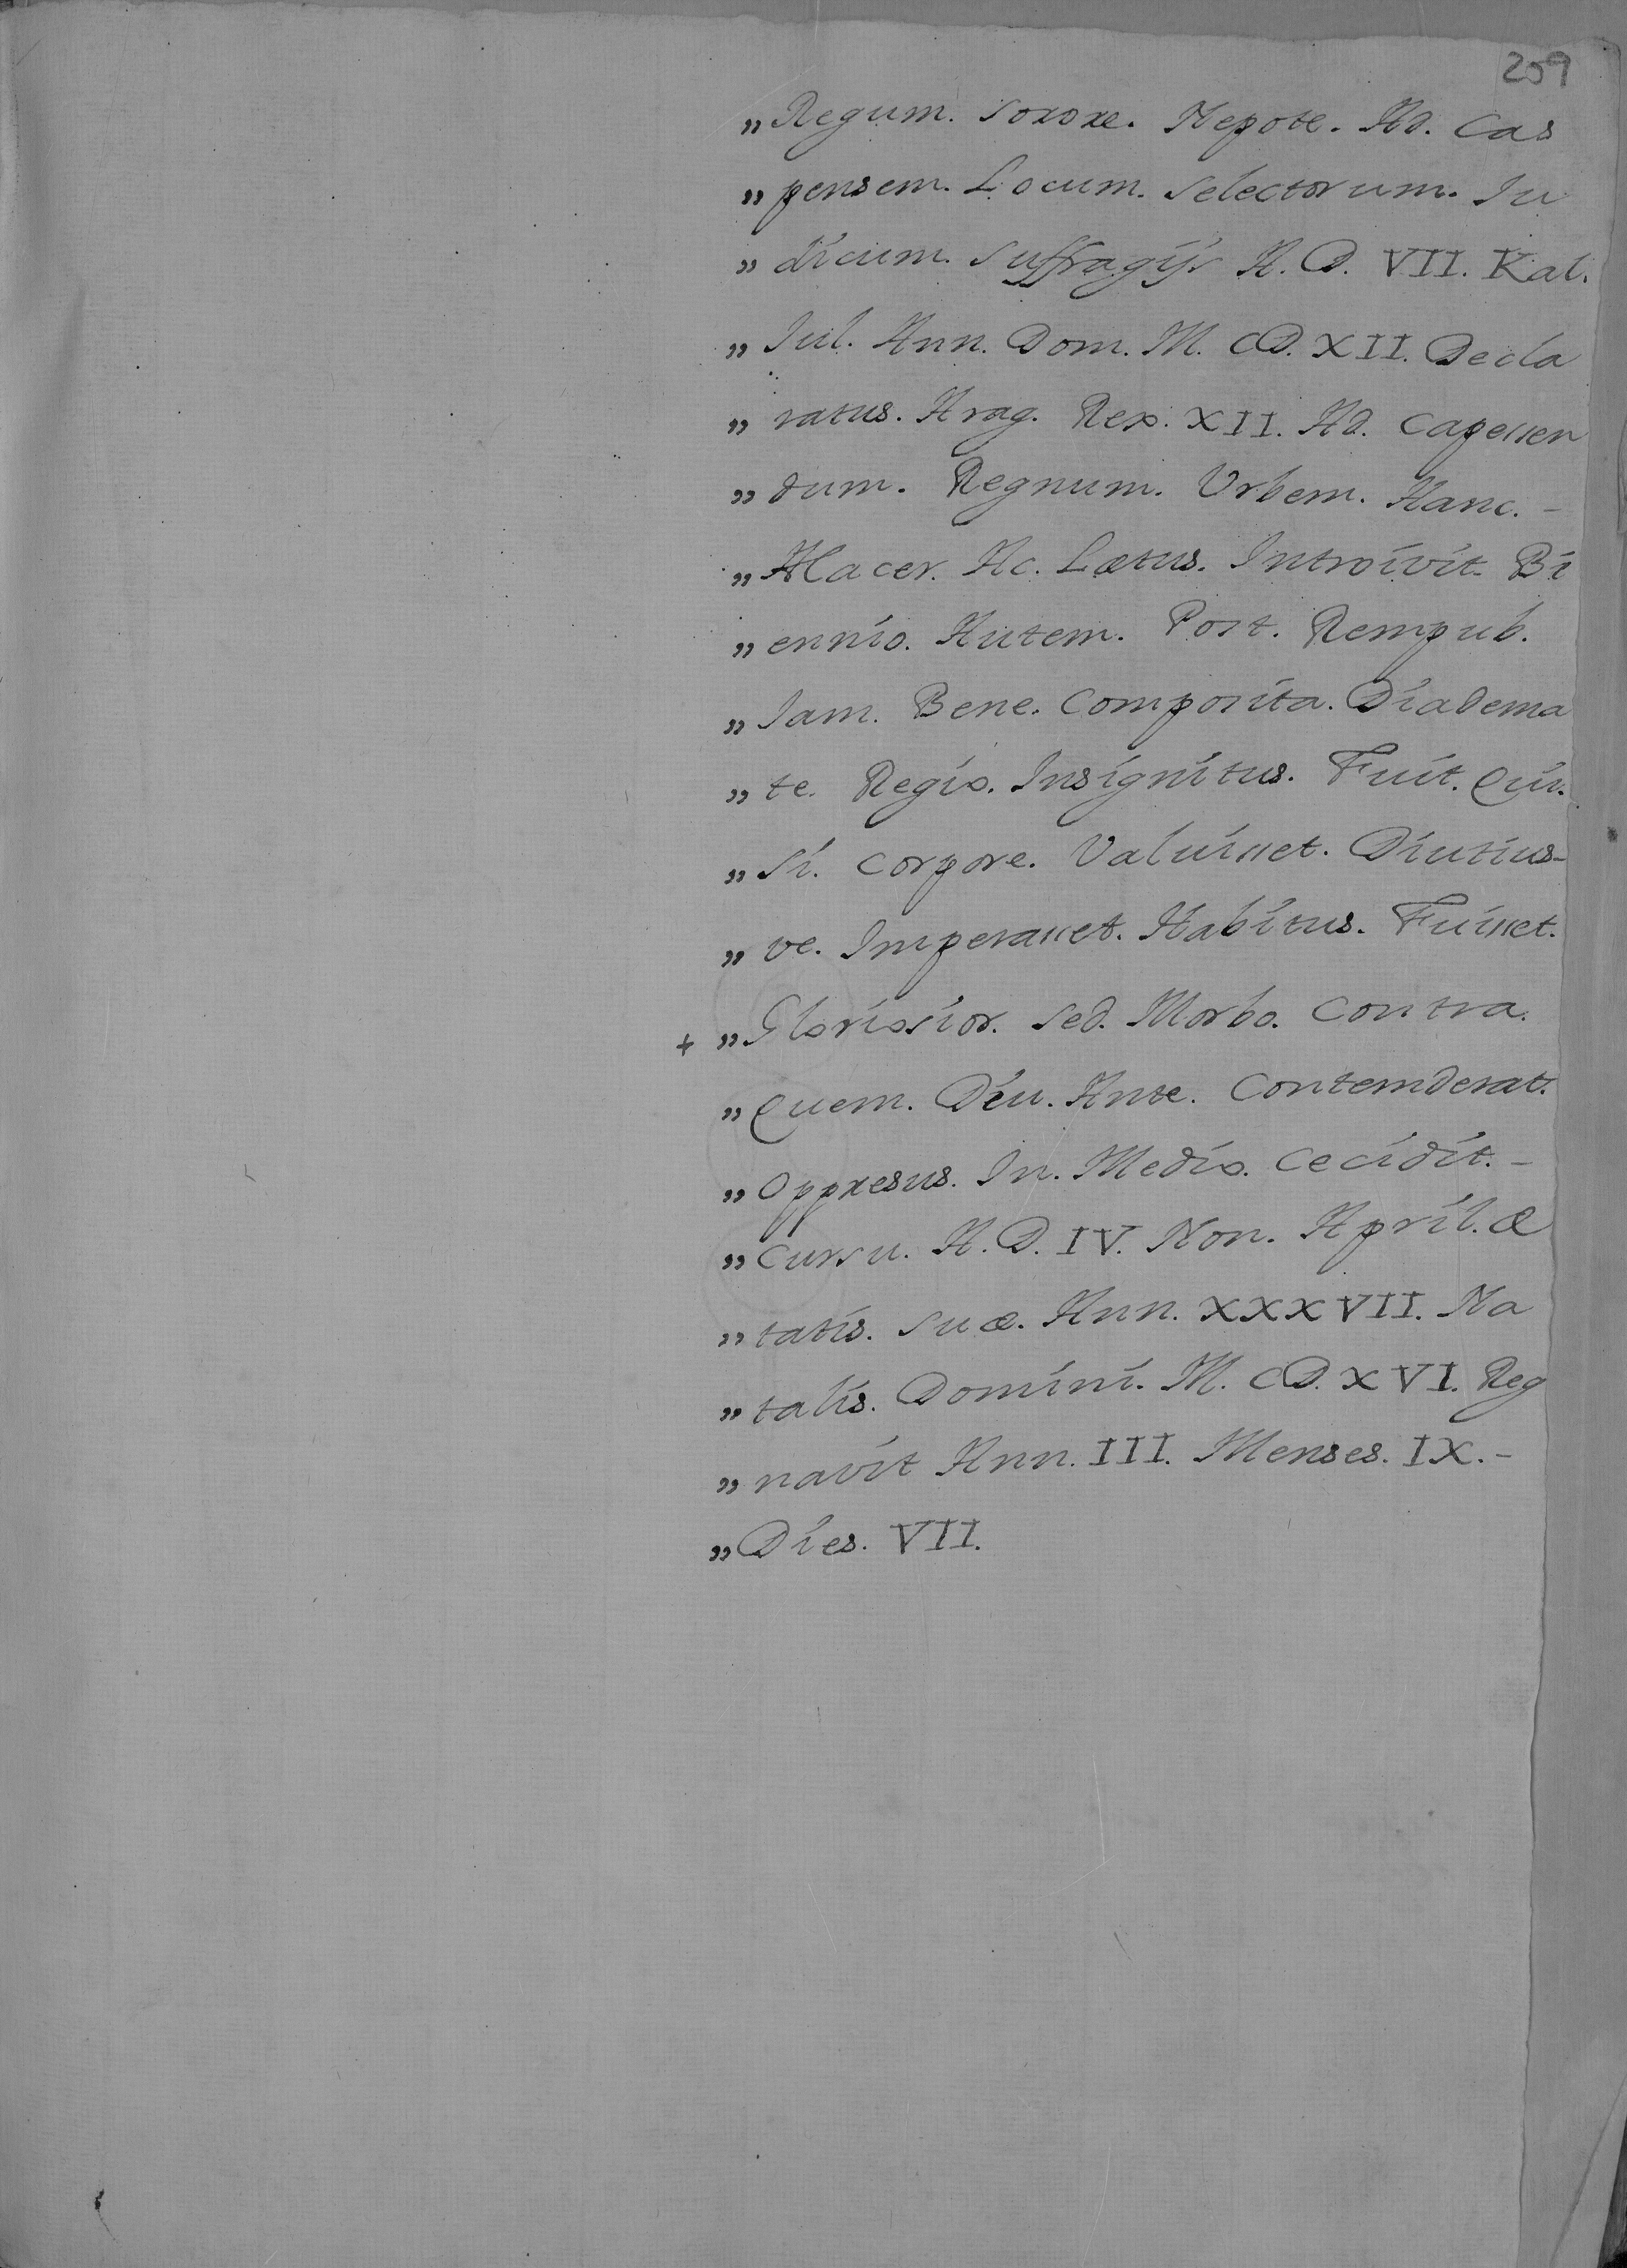 209
„Regum. Sorore. Nepote. Ad. Cas
„pensem. Locum. Selectorum. Iu
„dicum. Suffragijs A. D. VII. Kal.
„Iul. Ann. Dom. M. CD. XII. Decla
„ratus. Arag. Rex. XII. Ad. Capessen
„dum. Regnum. Urbem. Hanc. -
„Alacer. Ac. Lætus. Introivit. Bi
„ennio. Autem. Post. Rempub.
„Iam. Bene. Composita. Diadema
„te. Regio. Insignitus. Fuit. Qui.
„Si. Corpore. Valuisset. Diutius-
„ve. Imperasset. Habitus. Fuisset.
+ „Gloriosior. Sed. Morbo. Contra.
„Quem. Diu. Ante. Contemderat.
„Oppresus. In. Medio. Cecidit. -
„Cursu. A. D. IV. Non. April. Æ
„tatis. Suæ. Ann. XXXVII. Na
„talis. Domini. M. CD. XVI. Reg
„navit Ann. III. Menses. IX. -
„Dies. VII.